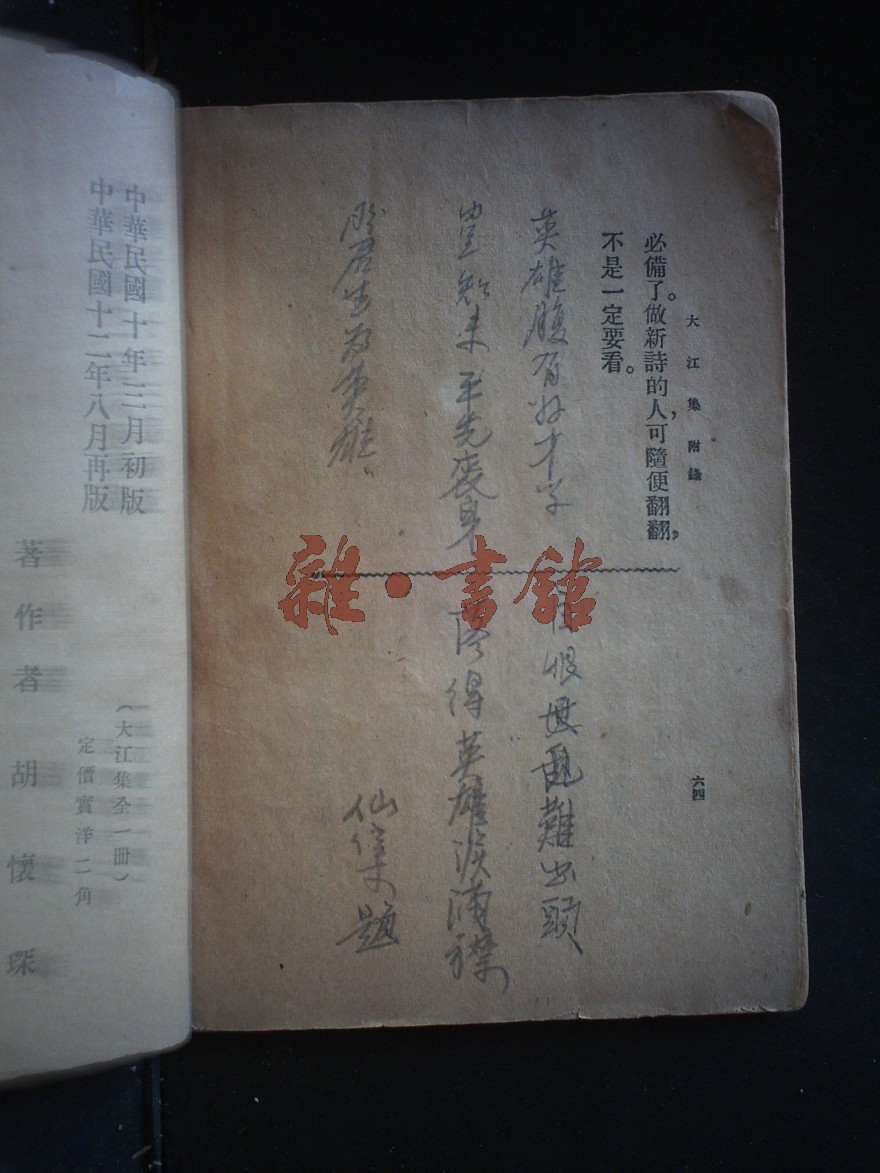 大江集附錄
必備了。做新詩的人，可隨便翻翻，
不是一定要看。
六四
英雄腹有好才学
恨世亂難出頭
豈料未平先喪身
落得英雄淚滿襟
君生為英雄
仙集題
雜·書館
中華民國十年三月初版
中華民國十二年八月再版
（大江集全一冊）
定價實洋二角
著作者胡懷琛